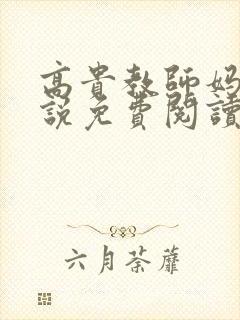 高貴教師妈
説免費閱讀
六月荼蘼